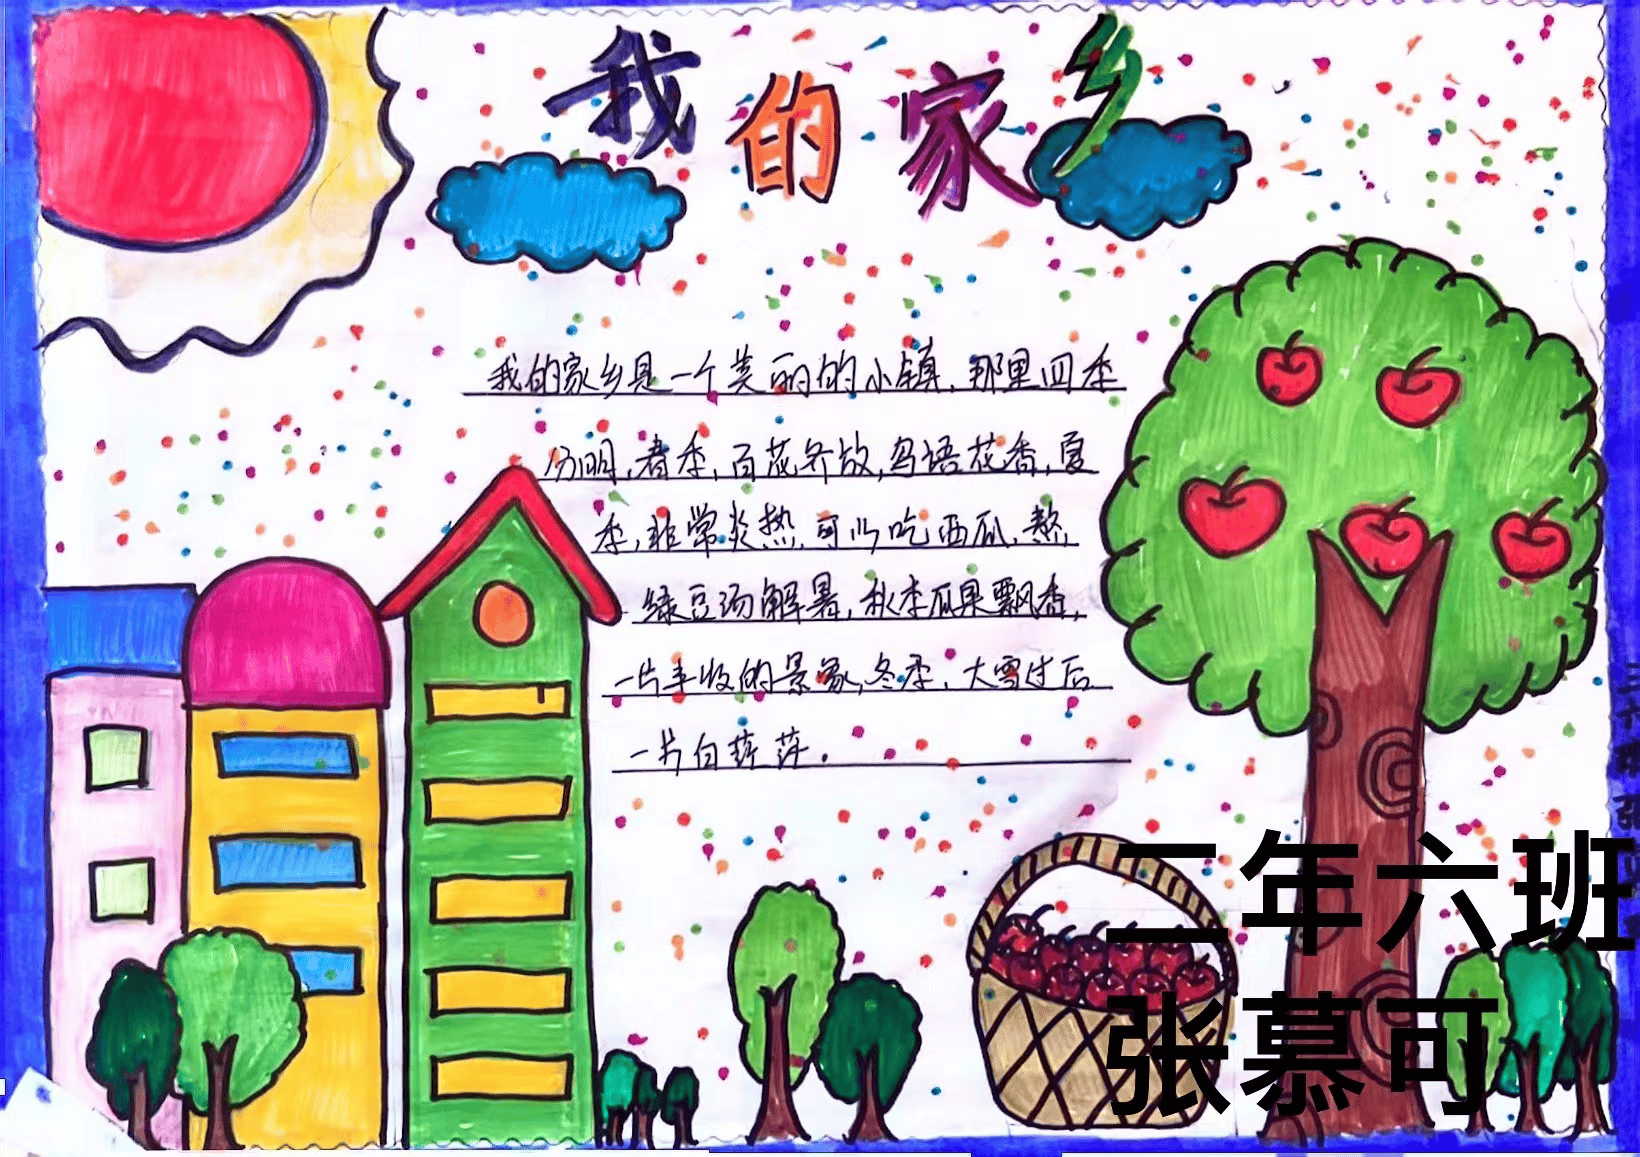 我的家乡
我的家乡是一个美丽的小镇,那里四季
分明,春季,百花齐放,鸟语花香,夏
季,非常炎热,可以吃西瓜,熬
绿豆汤解暑,秋季瓜果飘香,
一片丰收的景象,冬季,大雪过后
一片白茫茫.
二年六班
张慕可